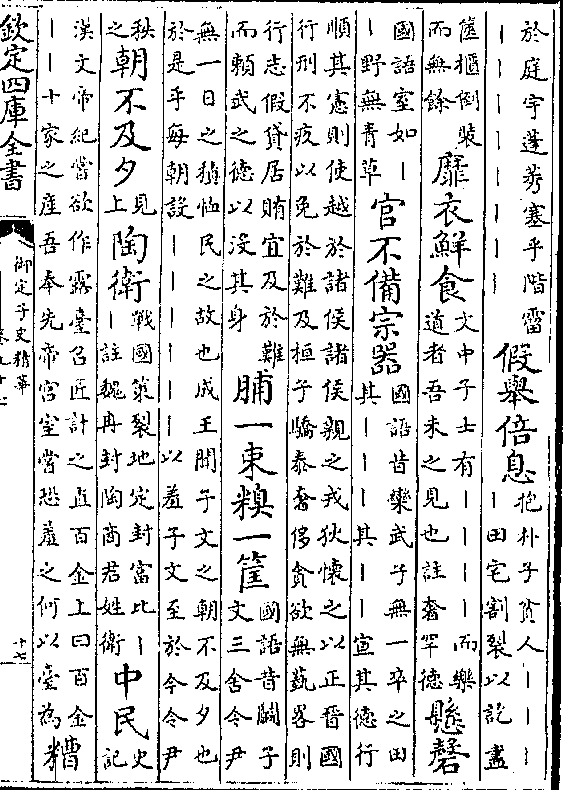 於庭宇蓬蒡塞乎階霤
｜｜｜｜｜｜｜｜
假舉倍息
抱朴子貧人｜｜｜
｜田宅割裂以訖盡
篋櫃倒裝
而無餘
靡衣鮮食
文中子士有｜｜｜｜而樂
道者吾未之見也註奢罕德
懸磬
國語室如｜
｜野無青草
官不備宗器
國語昔欒武子無一卒之田
其｜｜｜其｜｜｜宣其德行
順其憲則使越於諸侯諸侯親之戎狄懷之以正晉國
行刑不疚以免於難及桓子驕泰奢侈貪欲無藝畧則
行志假貸居賄宜及於難
而賴武之德以沒其身
脯一束糗一筐
國語昔鬭子
文三舍令尹
無一日之積恤民之故也成王聞子文之朝不及夕也
於是乎每朝設｜｜｜｜｜｜以羞子文至於今令尹
秩
之
朝不及夕
見
上
陶衛
戰國策裂地定封富比｜
｜註魏冉封陶商君姓衛
中民
史
記
漢文帝紀嘗欲作露臺召匠計之直百金上曰百金
｜｜十家之產吾奉先帝宮室嘗恐羞之何以臺為
糟
欽定四庫全書
御定子史精華
十七